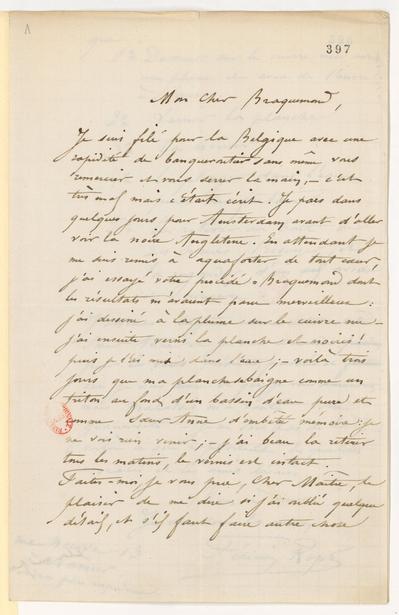 397
Mon Cher Braquemond,
Je suis filé pour la Belgique avec une
rapidité de banqueroutier sans même vous
remercier et vous serrer la main, – c'est
très mal mais c'était écrit. Je pars dans
quelques jours pour Amsterdam avant d'aller
voir la noire Angleterre. En attendant je
me suis remis à aquafortер de tout cœur,
j'ai essayé votre procédé – Braquemond dont
les résultats m'avaient paru merveilleux :
j'ai dessiné à la plume sur le cuivre nu –
j'ai ensuite verni la planche et noirci !
puis je l'ai mise dans l'eau ; – voilà trois
jours que ma planche se baigne comme un
triton au fond d'un bassin d'eau pure et
comme Sœur Anne d'embêtée mémoire : je
ne vois rien venir ; – j'ai beau la retirer
tous les matins, le vernis est intact.
Faites-moi, je vous prie, Cher Maître, le
plaisir de me dire si j'ai oublié quelque
détail, et s'il faut faire autre chose